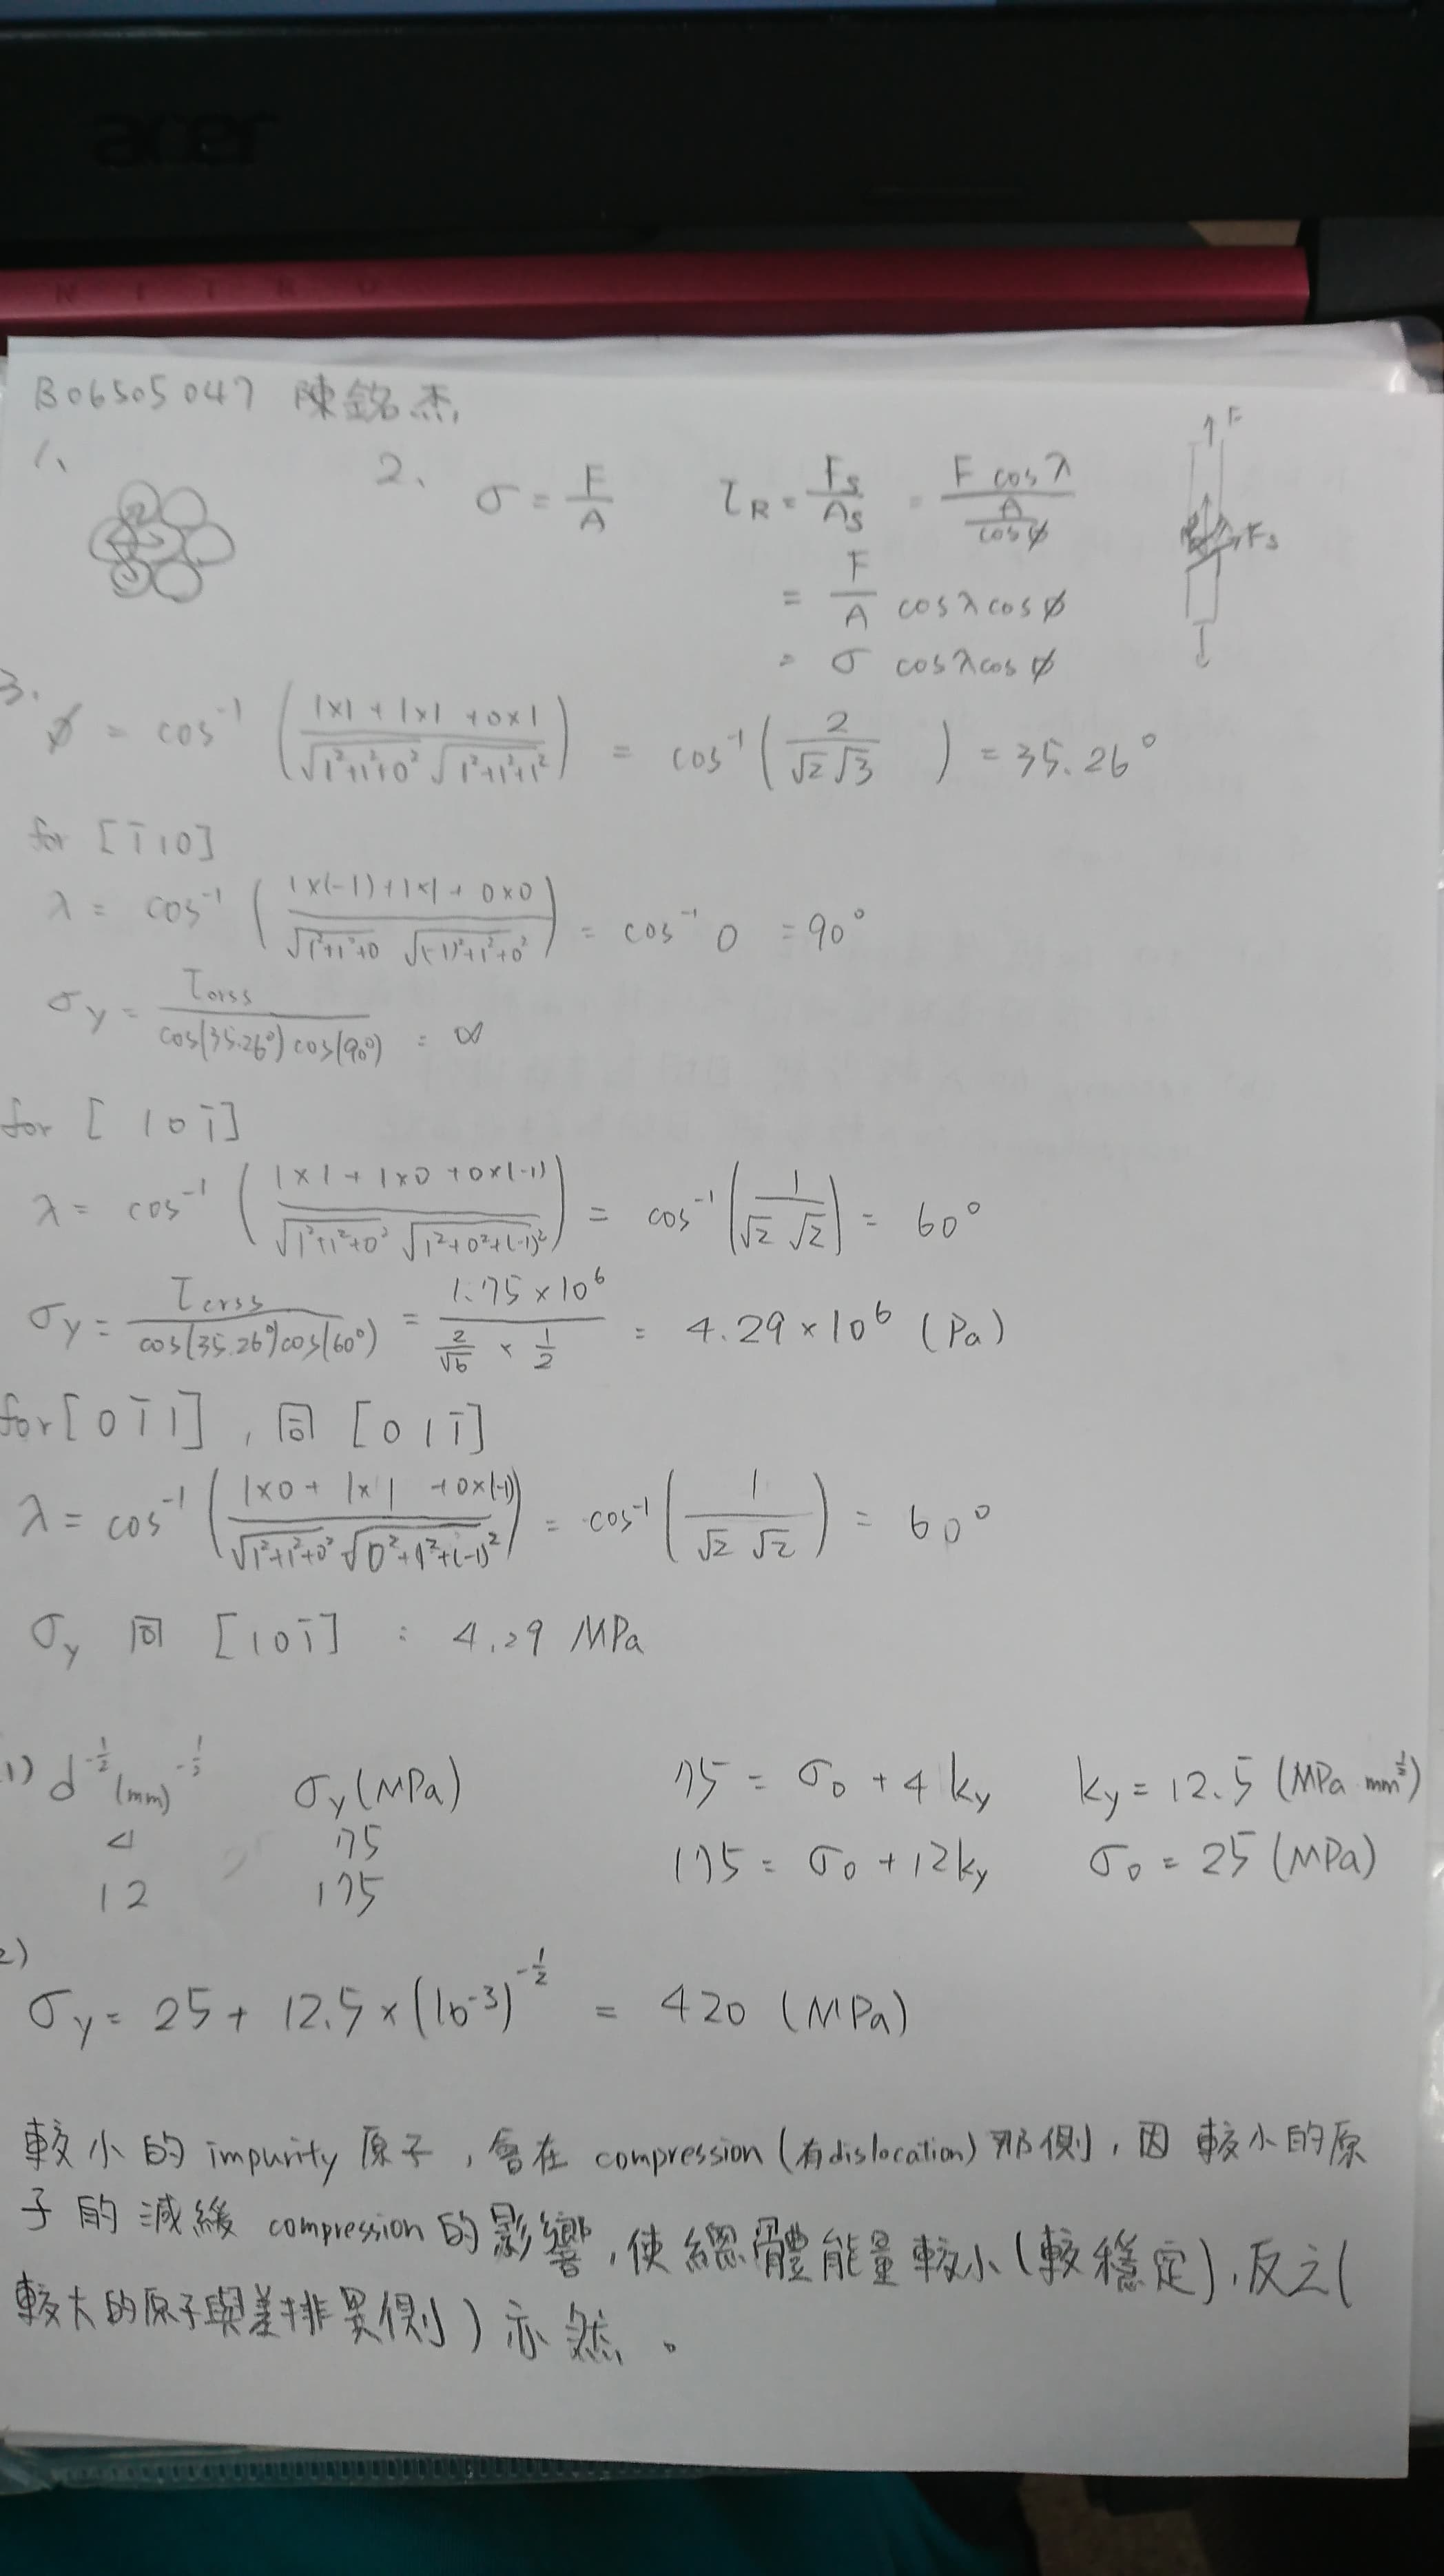 acer
NITRO
B06505047 陳銘杰
1、
2、 σ = F/A τR = Fs/As = F cosλ / (A/cosφ)
F
Fs
= F/A cosλcosφ
= σ cosλcosφ
3. φ = cos⁻¹ ( (1×1 + 1×1 + 0×1) / (√1²+1²+0² √1²+1²+1²) ) = cos⁻¹ ( 2 / √2√3 ) = 35.26°
for [1̄10]
λ = cos⁻¹ ( (1×(-1) + 1×1 + 0×0) / (√1²+1²+0 √(-1)²+1²+0²) ) = cos⁻¹ 0 = 90°
σy = τcrss / cos(35.26°) cos(90°) = ∞
for [101̄]
λ = cos⁻¹ ( (1×1 + 1×0 + 0×(-1)) / (√1²+1²+0² √1²+0²+(-1)²) ) = cos⁻¹ ( 1 / √2 √2 ) = 60°
σy = τcrss / cos(35.26°)cos(60°) = 1.75×10⁶ / (2/√6 × 1/2) = 4.29×10⁶ (Pa)
for [01̄1], 同 [011̄]
λ = cos⁻¹ ( (1×0 + 1×1 + 0×(-1)) / (√1²+1²+0² √0²+1²+(-1)²) ) = cos⁻¹ ( 1 / √2 √2 ) = 60°
σy 同 [101̄] = 4.29 MPa
1) d^-½ (mm)^-½ σy (MPa) 75 = σ0 + 4 ky ky = 12.5 (MPa mm^½)
4 75 175 = σ0 + 12ky σ0 = 25 (MPa)
12 175
2)
σy = 25 + 12.5 × (10⁻³)^-½ = 420 (MPa)
較小的 impurity 原子，會在 compression (有dislocation) 那側，因較小的原
子的減緩 compression 的影響，使總體能量較小(較穩定)，反之(
較大的原子與差排異側)亦然。